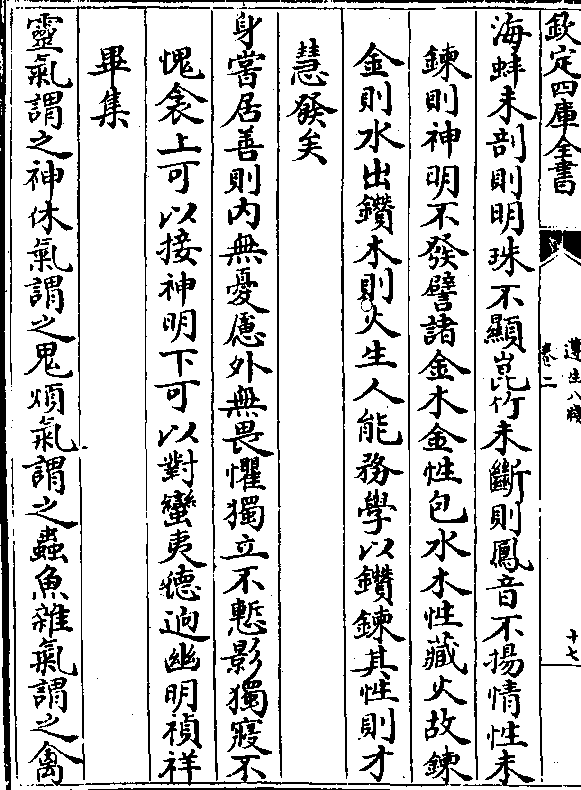 欽定四庫全書
遵生八牋
卷二
十七
海蚌未剖則明珠不顯崑竹未斷則鳳音不揚情性未
鍊則神明不發譬諸金木金性包水木性藏火故鍊
金則水出鑽木則火生人能務學以鑽鍊其性則才
慧發矣
身嘗居善則内無憂慮外無畏懼獨立不慙影獨寢不
愧衾上可以接神明下可以對蠻夷德逈幽明禎祥
畢集
靈氣謂之神休氣謂之鬼煩氣謂之蟲魚雜氣謂之禽